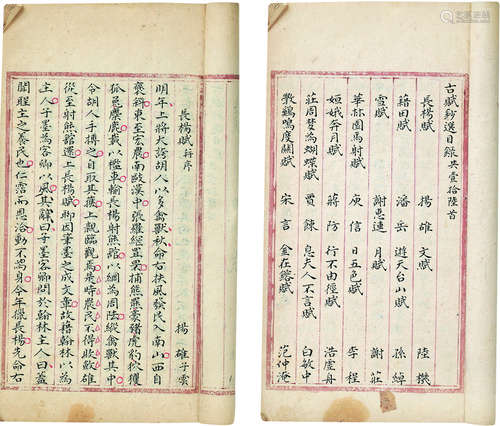 古賦鈔選目錄 共壹拾陸首
長楊賦 揚雄 文賦 陸機
籍田賦 潘岳 遊天台山賦 孫綽
雪賦 謝惠連 月賦 謝莊
華林園馬射賦 庾信 日五色賦 李程
姮娥奔月賦 蔣防 行不由徑賦 浩虛舟
莊周夢為蝴蝶賦 賈餗 息夫人不言賦 白敏中
教鷄鳴度關賦 宋言 金在鎔賦 范仲淹
長楊賦 并序
揚雄子雲
明年上將大誇胡人以多禽獸秋命右扶風發民入南山西自
褒斜東至宏農南敺漢中張羅網罝罘捕熊羆豪豬虎豹狖玃
狐兔麋鹿載以檻車輸長楊射熊館以網為周阹縱禽獸其中
令胡人手搏之自取其獲上親臨觀焉是時農民不得收斂雄
從至射熊館還上長楊賦聊因筆墨之成文章故藉翰林以為
主人子墨為客卿以風其辭曰子墨客卿問於翰林主人曰蓋
聞聖主之養民也仁霑而恩洽動不為身今年獵長楊先命右